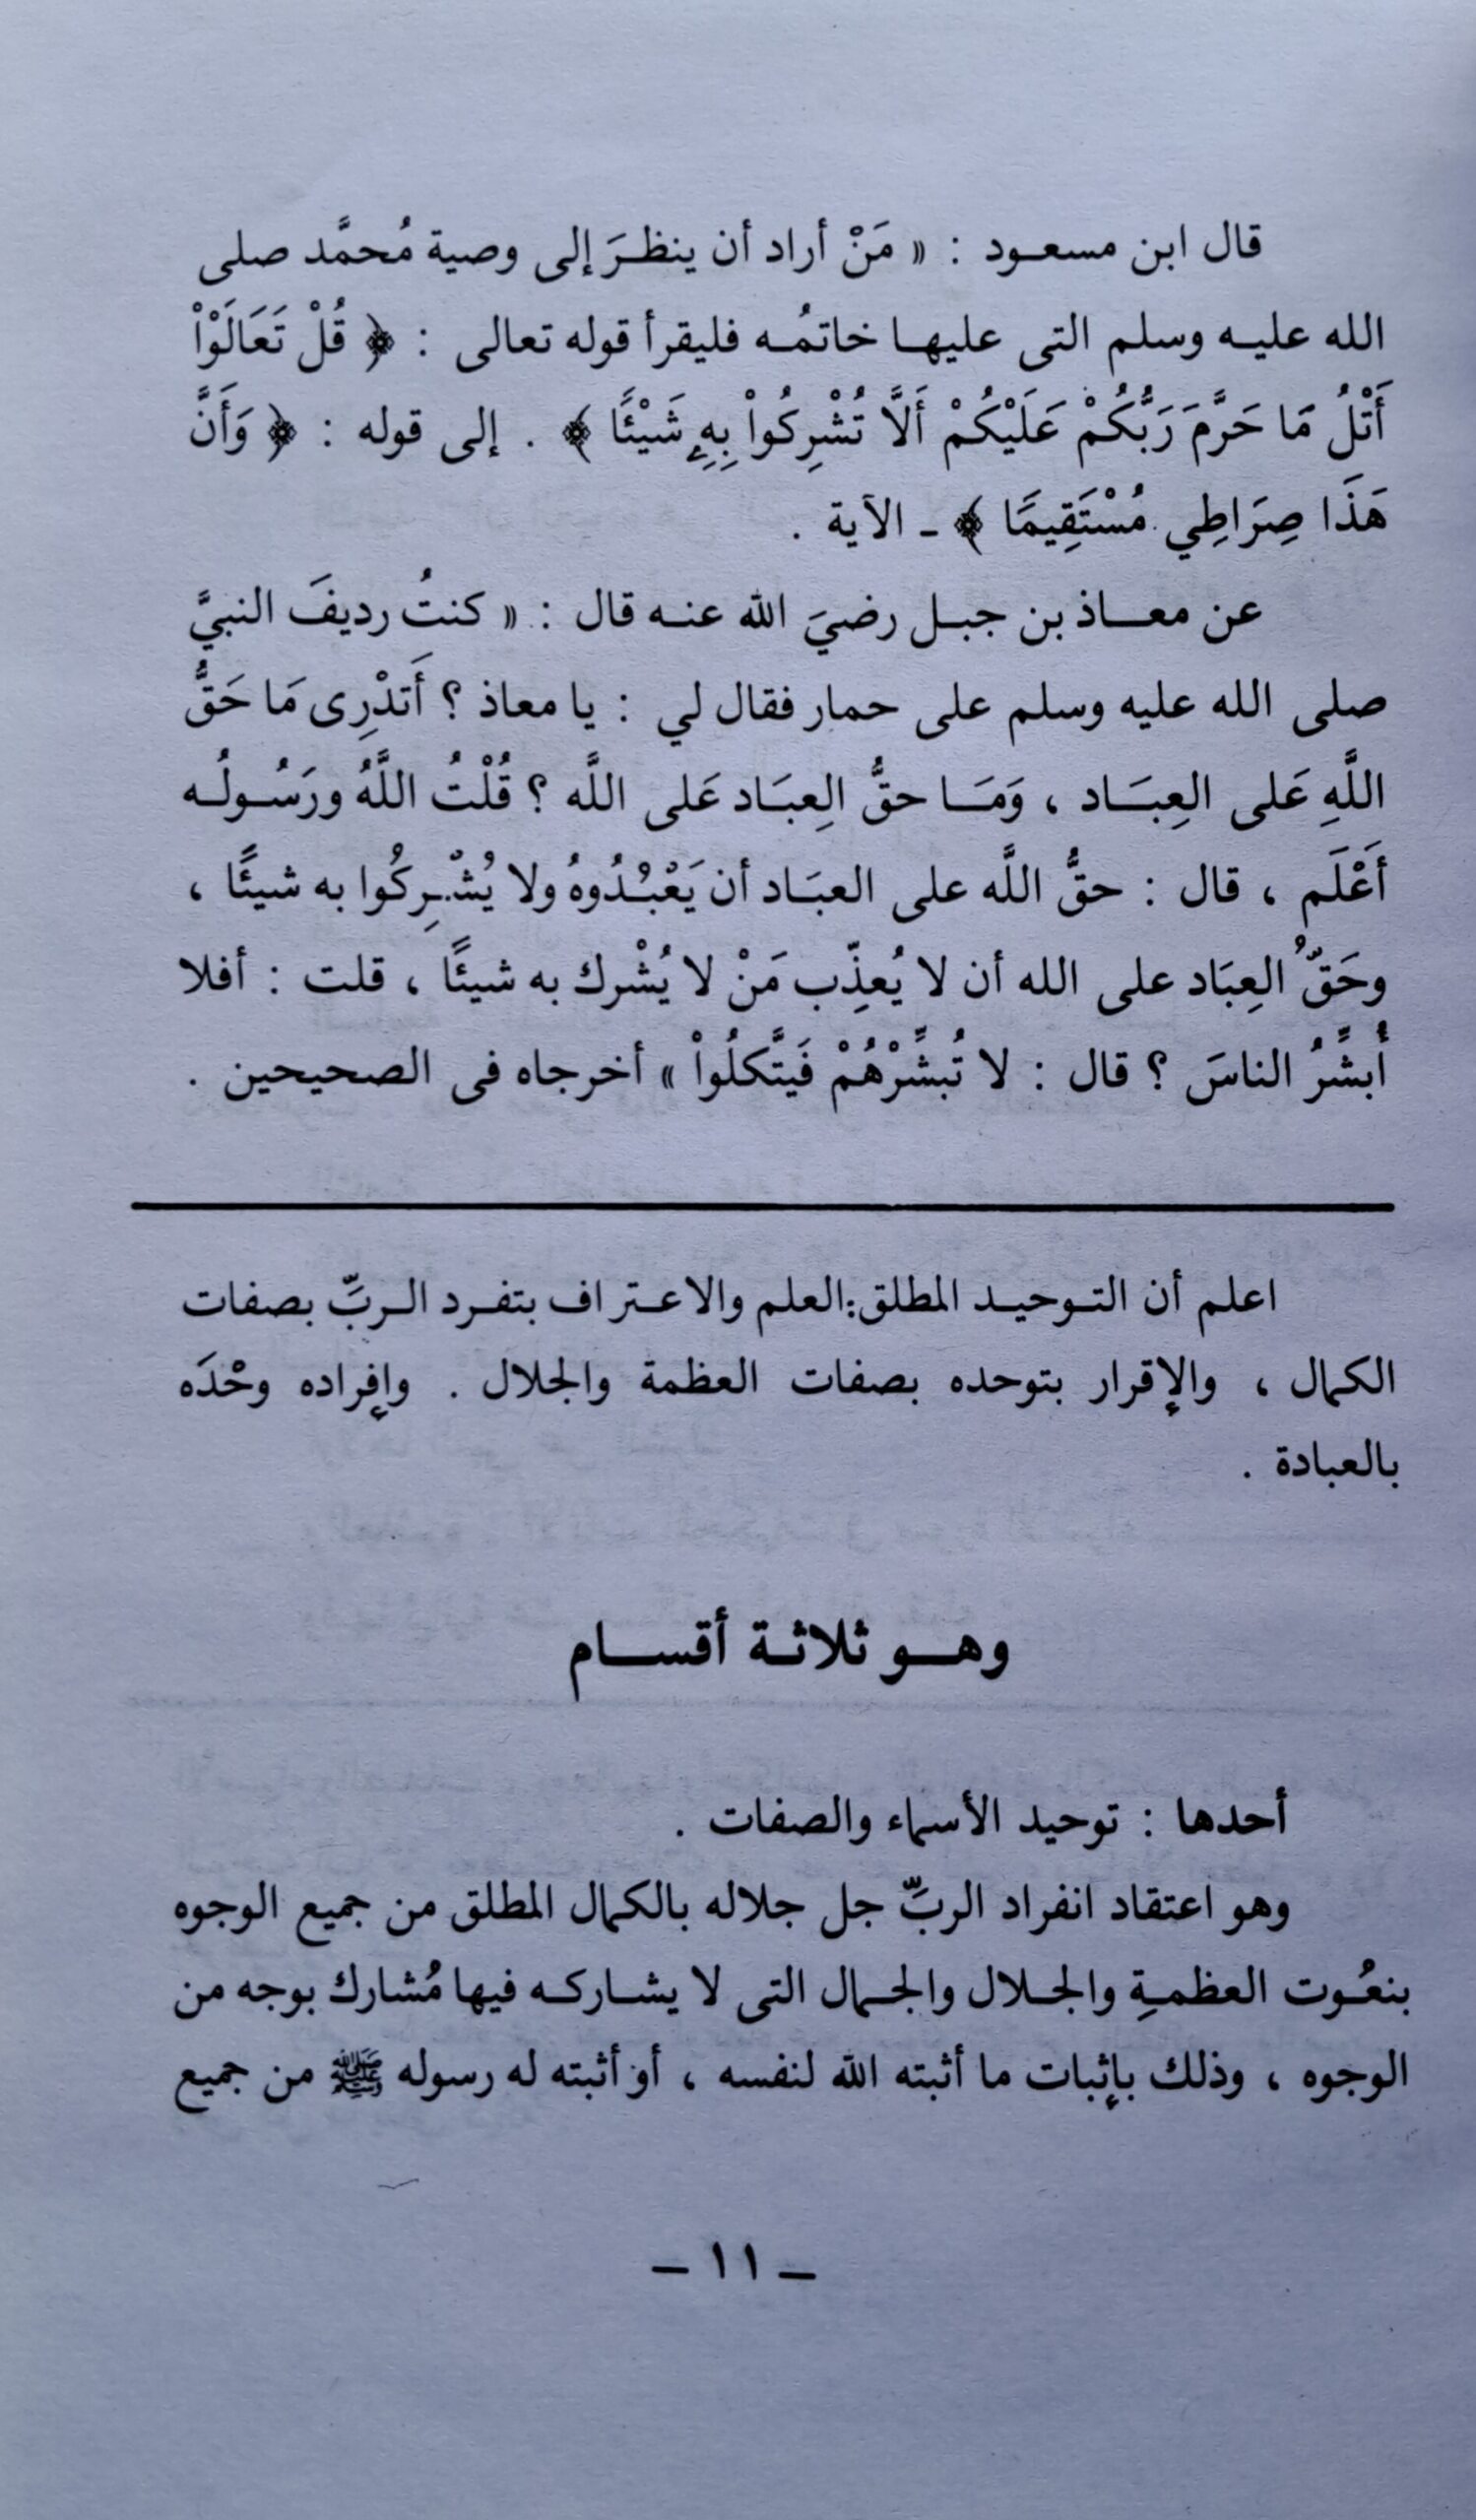 قال ابن مسعـود : « مَنْ أراد أن ينظـرَ إلى وصية مُحمَّد صلى
الله عليـه وسلم التى عليهـا خاتمُـه فليقرأ قوله تعالى : ﴿ قُلْ تَعَالَوْاْ
أَتْلُ مَا حَرَّمَ رَبُّكُمْ عَلَيْكُمْ أَلَّا تُشْرِكُواْ بِهِۦ شَيْئًا ﴾ . إلى قوله : ﴿ وَأَنَّ
هَذَا صِرَاطِي مُسْتَقِيمًا ﴾ ـ الآية .
عن معـاذ بن جبـل رضيَ الله عنـه قال : « كنتُ رديفَ النبيَّ
صلى الله عليه وسلم على حمار فقال لي : يا معاذ ؟ أَتدْرِى مَا حَقُّ
اللَّهِ عَلى العِبَـاد ، وَمَـا حقُّ العِبَـاد عَلى اللَّه ؟ قُلْتُ اللَّهُ ورَسُـولُـه
أَعْلَم ، قال : حقُّ اللَّه على العبَـاد أن يَعْبُـدُوهُ ولا يُشْـرِكُوا به شيئًا ،
وحَقّ العِبَاد على الله أن لا يُعذِّب مَنْ لا يُشْرك به شيئًا ، قلت : أفلا
أُبشِّرُ الناسَ ؟ قال : لا تُبشِّرْهُمْ فَيتَّكلُواْ » أخرجاه فى الصحيحين .
اعلم أن التـوحيـد المطلق : العلم والاعـتراف بتفـرد الـربِّ بصفات
الكمال ، والإقرار بتوحده بصفات العظمة والجلال . وإفراده وحْدَه
بالعبادة .
وهـو ثلاثـة أقسـام
أحدها : توحيد الأسماء والصفات .
وهو اعتقاد انفراد الربِّ جل جلاله بالكمال المطلق من جميع الوجوه
بنعُـوت العظمـةِ والجـلال والجـمال التى لا يشـاركـه فيها مُشارك بوجه من
الوجوه ، وذلك بإثبات ما أثبته الله لنفسه ، أو أثبته له رسوله ﷺ من جميع
ـ ١١ ـ